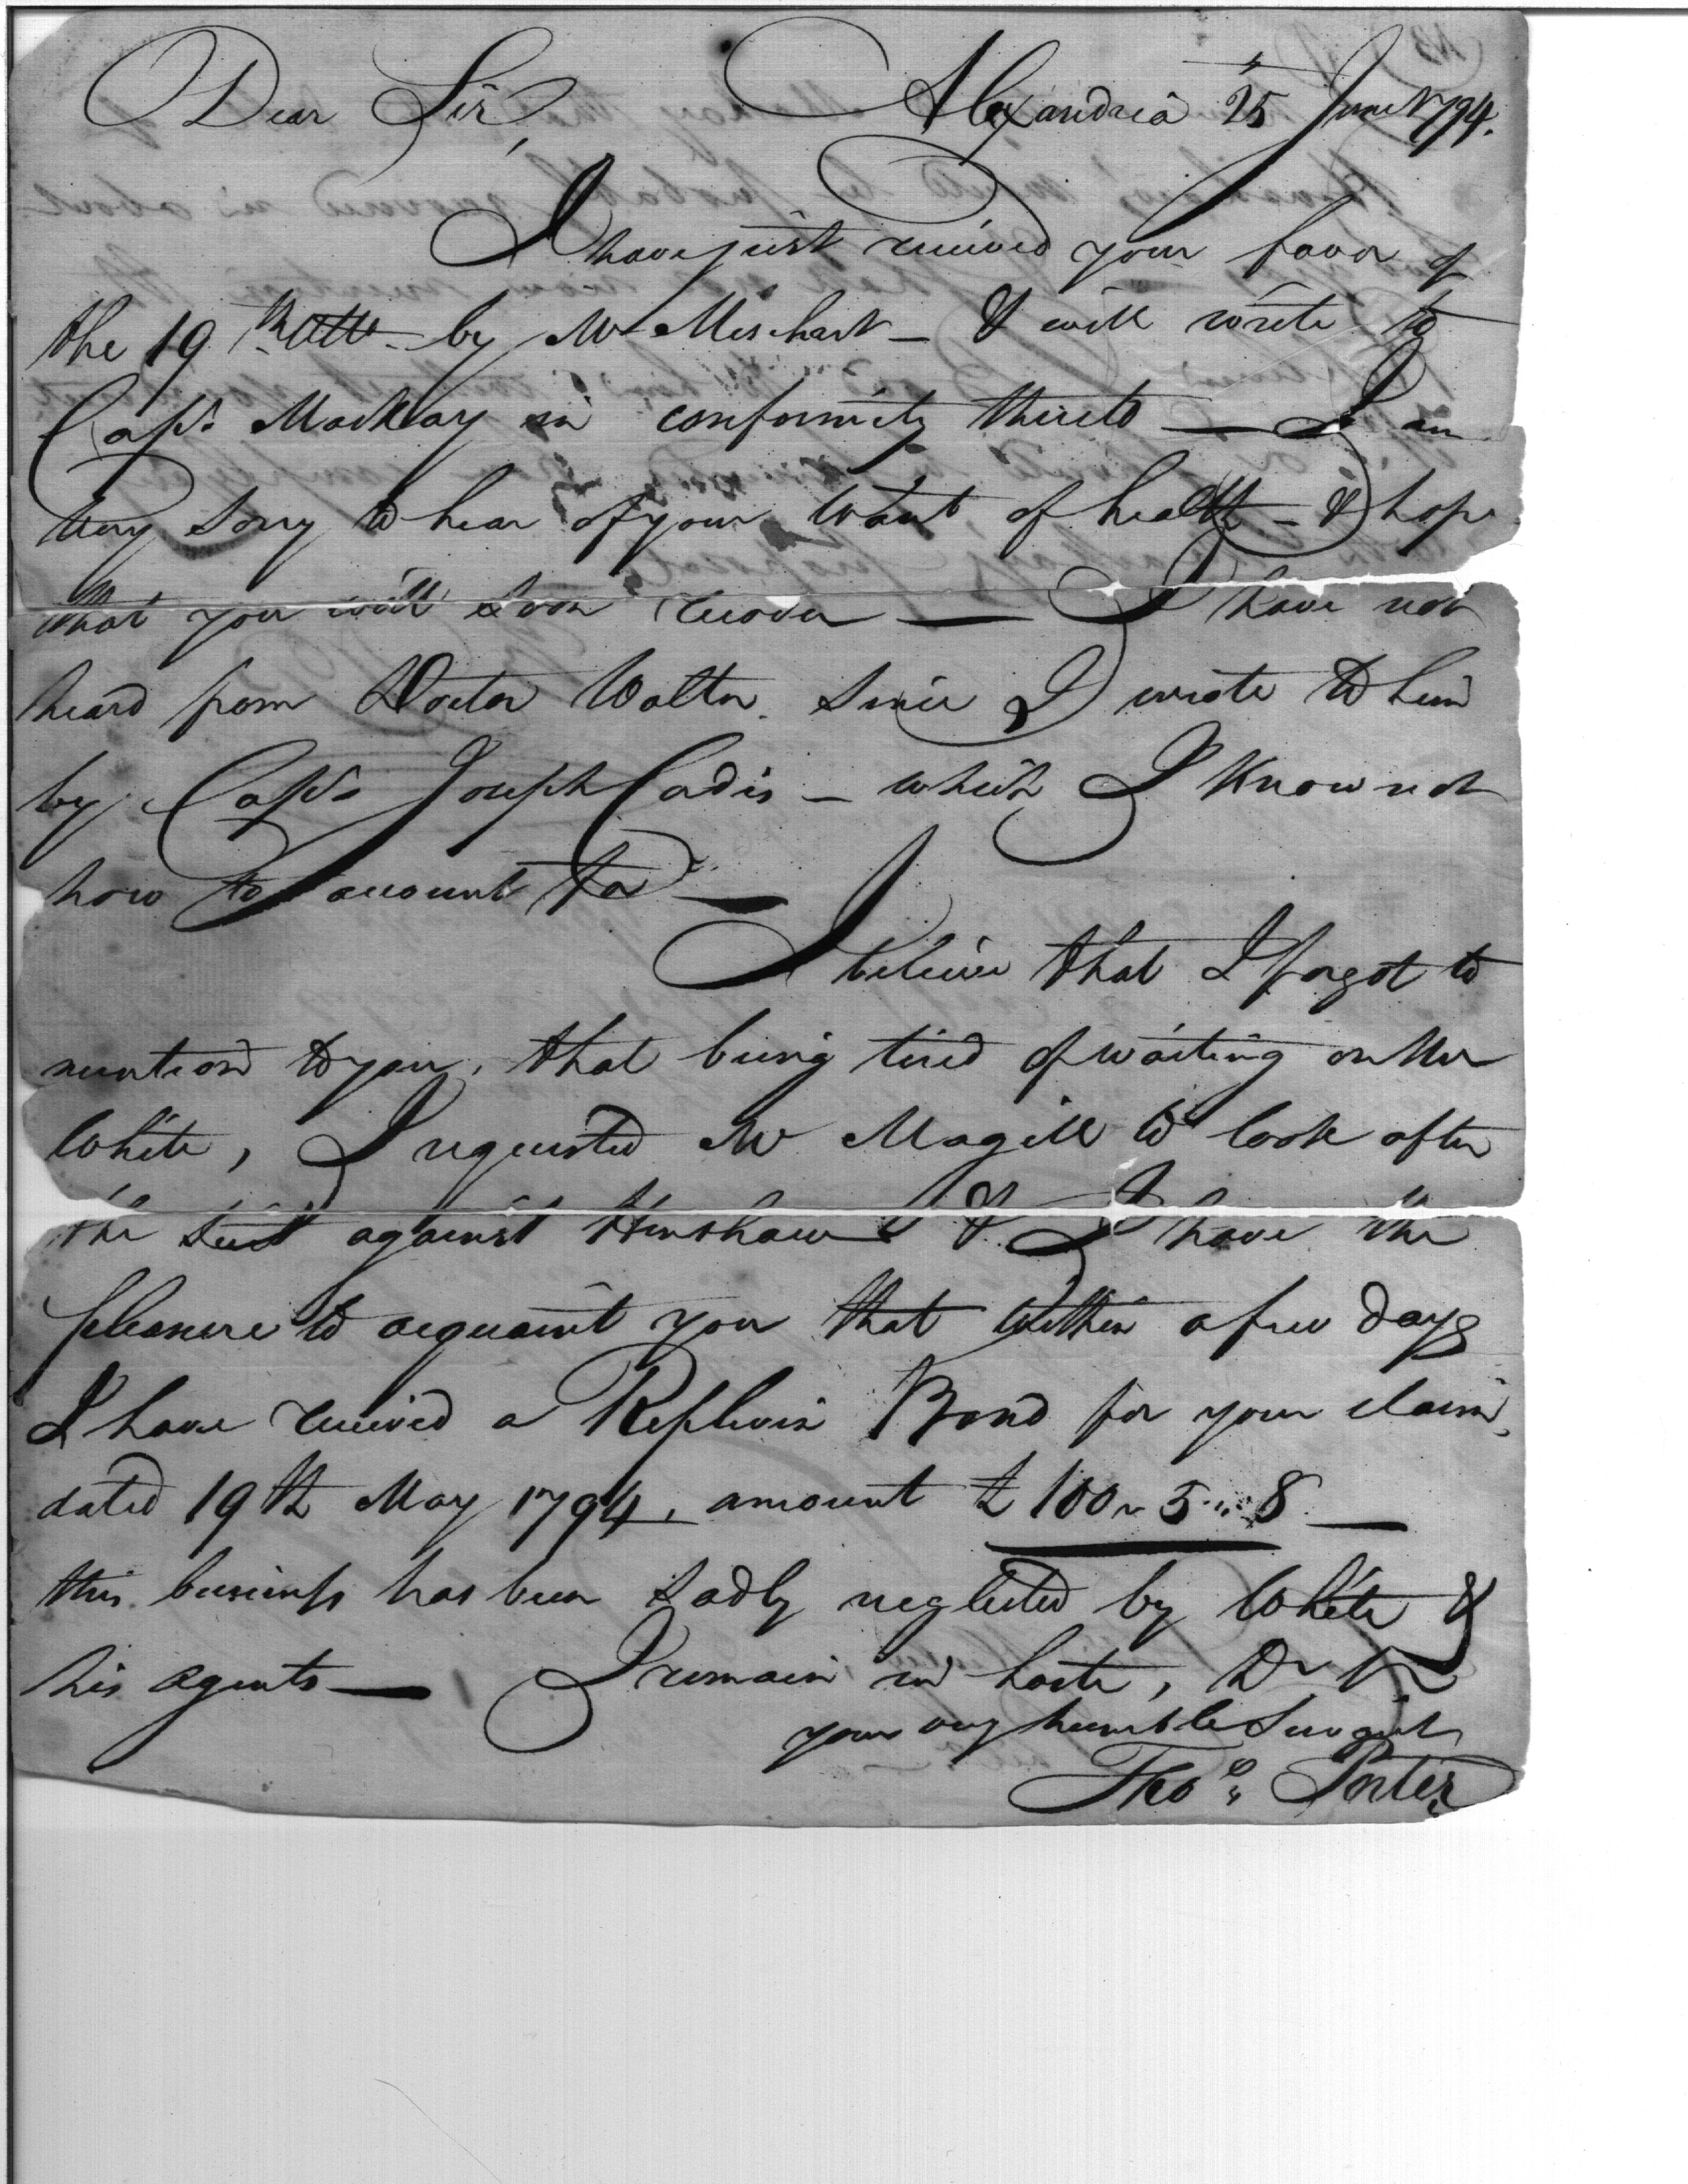 Dear Sir, Alexandria 25 June 1794.
I have just received your favor of
the 19th by Mr — I will write to
Capt. Mackay in conformity thereto — I am
very sorry to hear of your want of health — & hope
that you will soon recover — I have not
heard from Doctor Wolter. Since I wrote to him
by Capt. Joseph — which I know not
how to account for —
I believe that I forgot to
mention to you, that being tired of waiting on Mr
White, I requested Mr Magill to look after
the suit against Henshaw & I have the
pleasure to acquaint you that within a few days
I have received a Replevin Bond for your claim,
dated 19th May 1794, amount £100 " 5 " 8 —
this business has been sadly neglected by White &
his agents — I remain in haste, Dr Sr
your very humble Servant
Thos. Porter